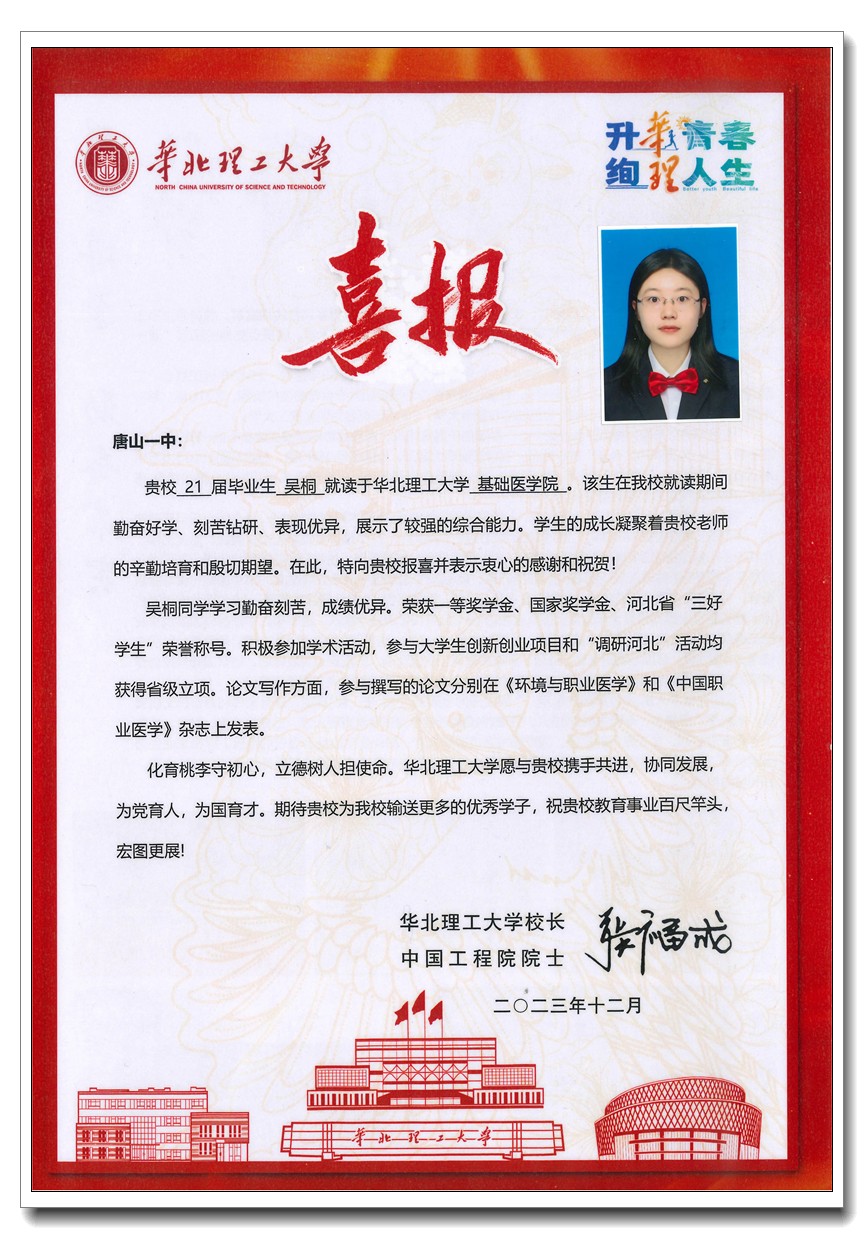 華北理工大學
NORTH CHINA UNIVERSITY OF SCIENCE AND TECHNOLOGY
升華青春
绚理人生
Better youth Beautiful life
喜报
唐山一中：
贵校 21 届毕业生 吴桐 就读于华北理工大学 基础医学院 。该生在我校就读期间
勤奋好学、刻苦钻研、表现优异，展示了较强的综合能力。学生的成长凝聚着贵校老师
的辛勤培育和殷切期望。在此，特向贵校报喜并表示衷心的感谢和祝贺！
吴桐同学学习勤奋刻苦，成绩优异。荣获一等奖学金、国家奖学金、河北省“三好
学生”荣誉称号。积极参加学术活动，参与大学生创新创业项目和“调研河北”活动均
获得省级立项。论文写作方面，参与撰写的论文分别在《环境与职业医学》和《中国职
业医学》杂志上发表。
化育桃李守初心，立德树人担使命。华北理工大学愿与贵校携手共进，协同发展，
为党育人，为国育才。期待贵校为我校输送更多的优秀学子，祝贵校教育事业百尺竿头，
宏图更展!
华北理工大学校长
中国工程院院士
张福成
二〇二三年十二月
华北理工大学